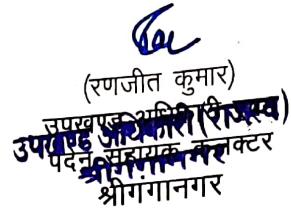 (रणजीत कुमार)
उपखण्ड अधिकारी
उपखण्ड अधिकारी (राजस्व)
पदेन सहायक कलक्टर
श्रीगंगानगर
श्रीगंगानगर